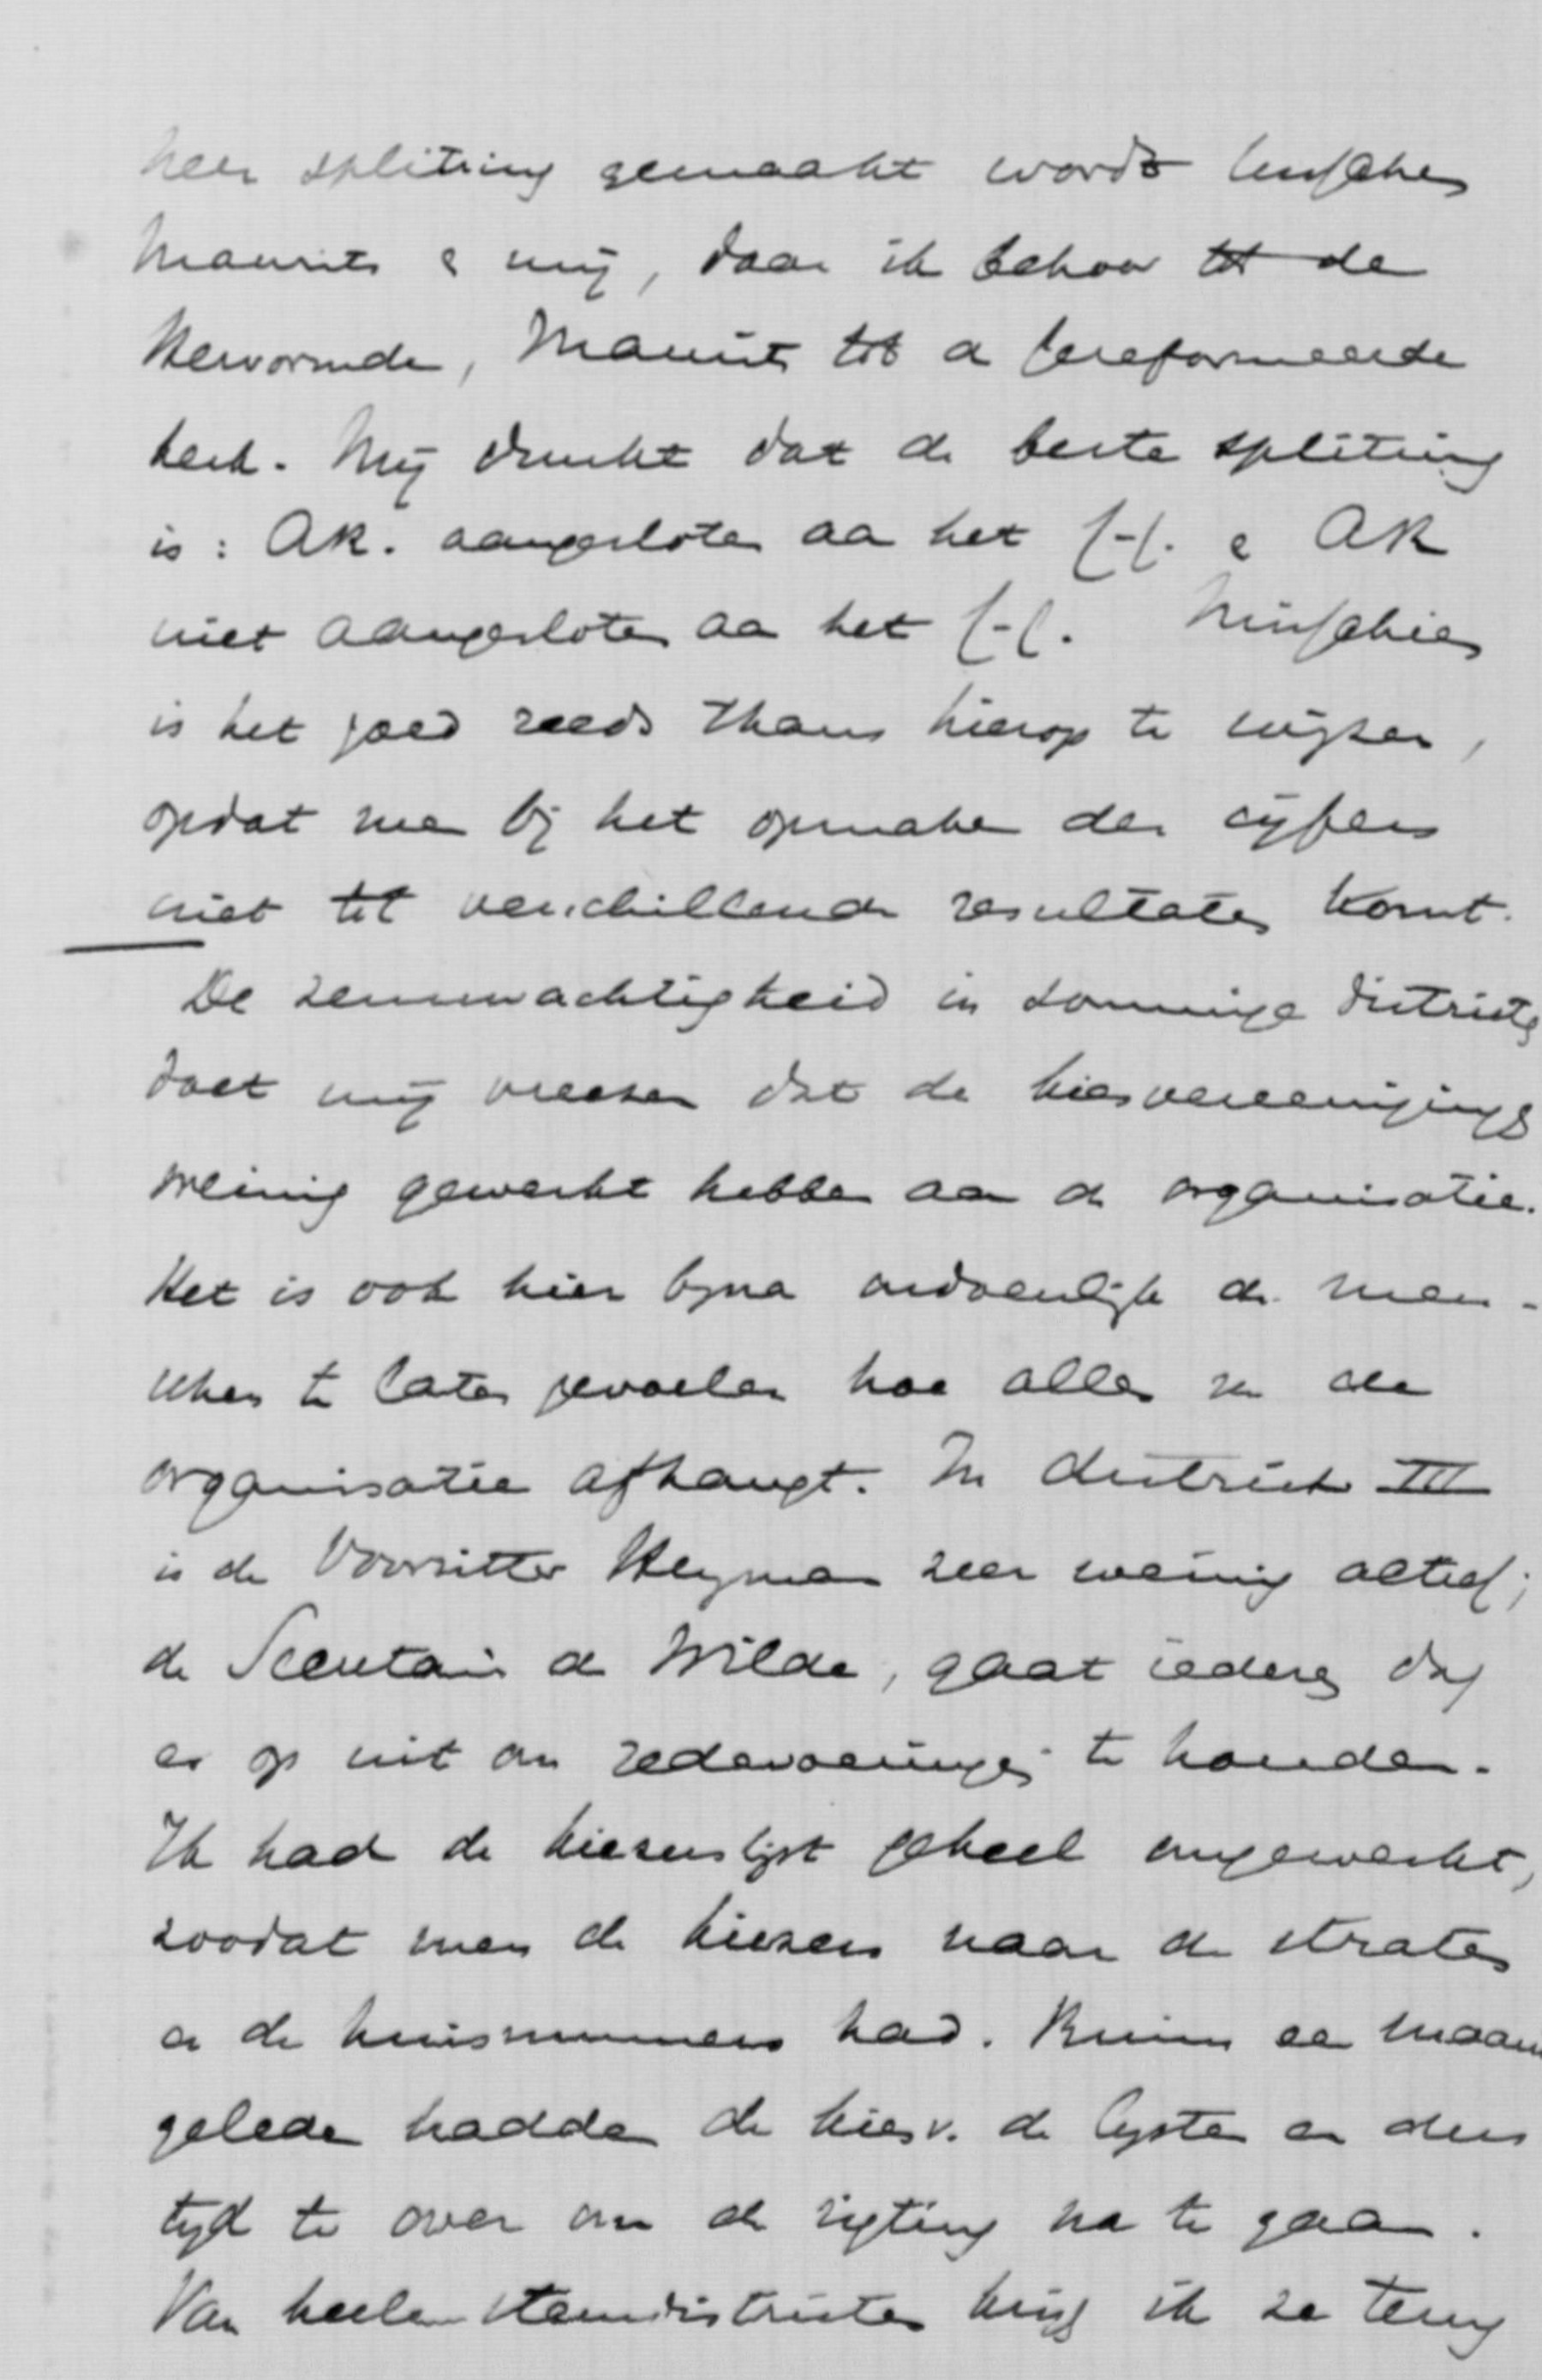 neer splitsing gemaakt wordt tusschen
Maurits & mij, daar ik behoor tot de
Hervormde, Maurits tot de Gereformeerde
kerk. Mij dunkt dat de beste splitsing
is: AR. aangesloten aan het C-C. & AR
niet aangesloten aan het C-C. Misschien
is het goed reeds thans hierop te wijzen,
opdat men bij het opmaken der cijfers
niet tot verschillende resultaten komt.
De zenuwachtigheid in sommige districten
doet mij vreezen dat de kiesvereenigingen
weinig gewerkt hebben aan de organisatie.
Het is ook hier bijna ondoenlijk de men-
schen te laten gevoelen hoe alles van de
organisatie afhangt. In district III
is de Voorzitter Heyman zeer weinig actief;
de Secretaris de Wilde, gaat iederen dag
er op uit om redevoeringen te houden.
Ik had de kiezerslijst geheel omgewerkt,
zoodat men de kiezers naar de straten
en de huisnummers had. Ruim een maand
geleden hadden de kiesv. de lijsten en dus
tijd te over om de rigting na te gaan.
Van heele stemdistricten krijg ik ze terug